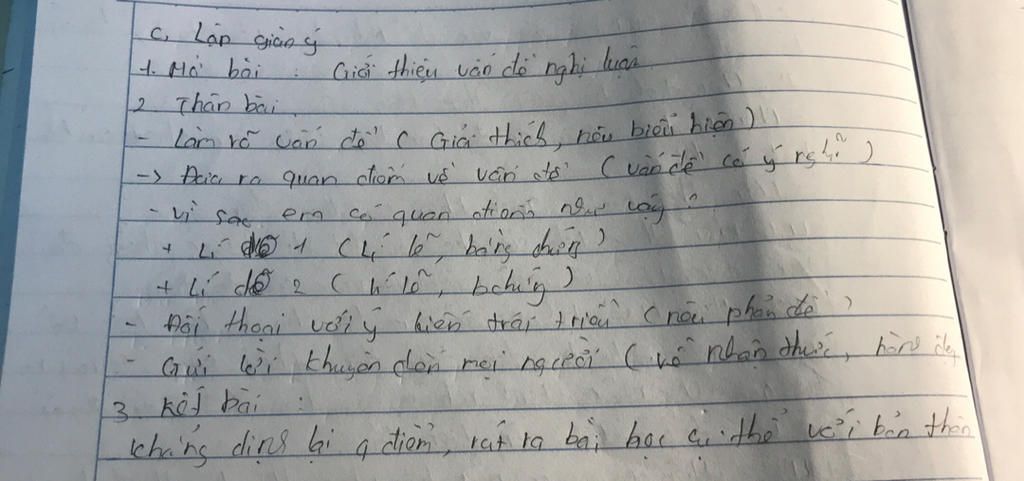 C. Lập giàn ý
1. Mở bài : Giới thiệu vấn đề nghị luận
2. Thân bài
- Làm rõ vấn đề ( Giải thích, nêu biểu hiện )
-> Đưa ra quan điểm về vấn đề ( vấn đề có ý nghĩ )
- Vì sao em có quan điểm như vậy ?
+ Lí do 1 ( Lí lẽ, bằng chứng )
+ Lí do 2 ( lí lẽ, bchứng )
- Đối thoại với ý kiến trái triều ( nêu phản đề )
- Gửi lời khuyên đến mọi người ( về nhận thức, hành
3. Kết bài :
khẳng định lại q điểm, rút ra bài học cụ thể với bản thân